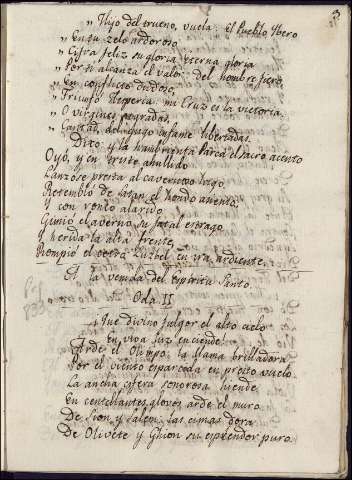 3
" Hijo del trueno, vuela: El Pueblo Ibero
" En tu zelo ardoroso
" Cifra feliz su gloria, eterna gloria
" Por ti alcanza el valor del hombre fiero,
" En conflicto dudoso,
" Triunfó Hesperia: mi Cruz es la victoria.
" O virgines sagradas,
" Cantad, del yugo infame libertadas.
Dixo: y la hambrienta Parca el sacro acento
Oyó, y en triste ahullido
Lanzóse presta al cavernoso lago.
Retembló de Satan el hondo asiento,
Y con ronco alarido
Gimió el averno su fatal estrago
Y herida la alta frente,
Rompió el cetro Luzbel en ira ardiente.
A la venida del Espiritu Santo.
Oda II
Que divino fulgor el alto cielo
En viva luz enciende!
Arde el Olimpo: la llama brilladora
Por el viento esparcada en presto vuelo
La ancha esfera sonorosa hiende
En centellantes globos arde el muro
De Sion y Salem: las cimas dora
De Olivete y Ghion su esplendor puro.